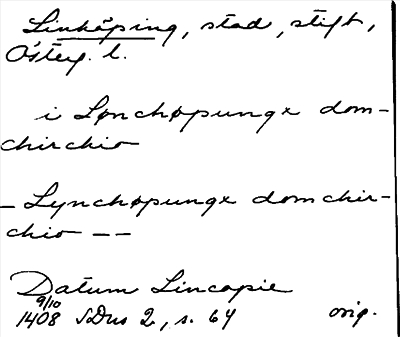 Linköping, stad, stift,
Österg. l.
i Lønchøpunge dom-
chirchio
- Lynchøpunge domchir-
chio - -
Datum Lincopie
9/10
1408 SDns 2, s. 64 orig.